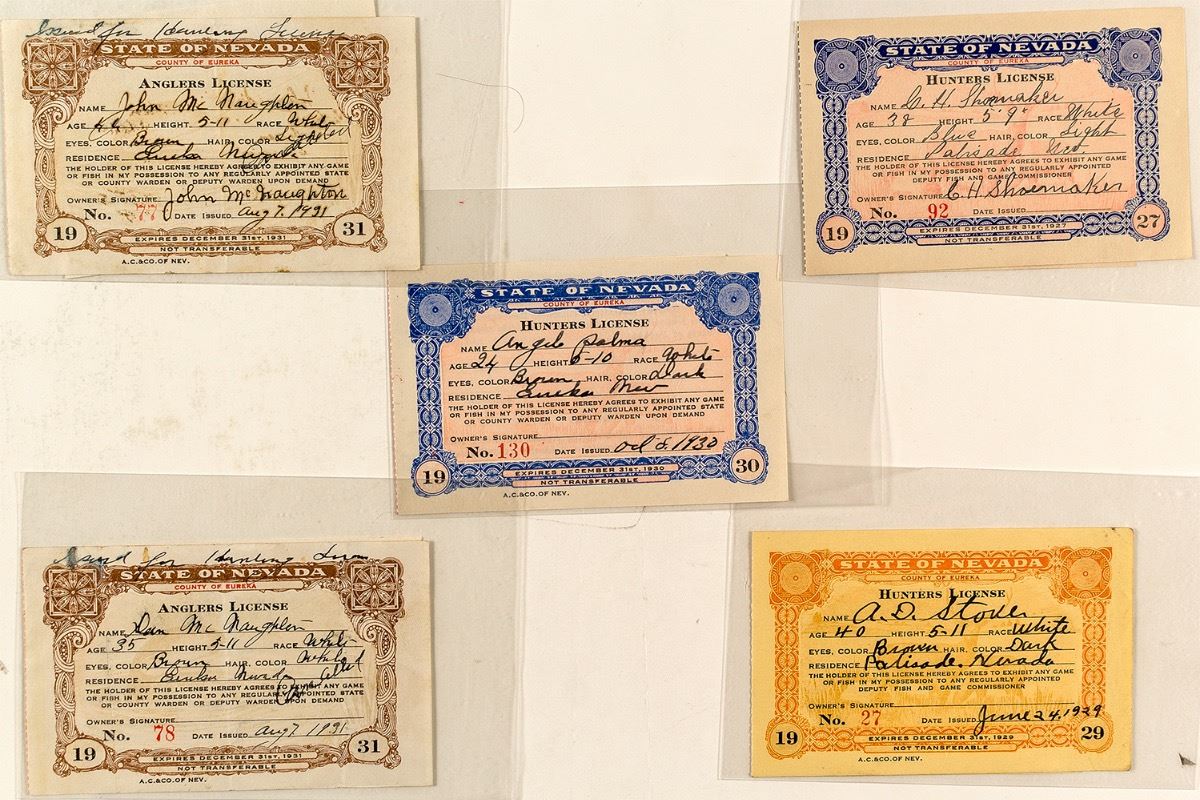 Issued for Hunting License
STATE OF NEVADA
COUNTY OF EUREKA
ANGLERS LICENSE
NAME John McNaughton
AGE HEIGHT 5-11 RACE White
EYES, COLOR Brown HAIR, COLOR
RESIDENCE Eureka Nevada
THE HOLDER OF THIS LICENSE HEREBY AGREES TO EXHIBIT ANY GAME
OR FISH IN MY POSSESSION TO ANY REGULARLY APPOINTED STATE
OR COUNTY WARDEN OR DEPUTY WARDEN UPON DEMAND
OWNER'S SIGNATURE John McNaughton
No. 77 DATE ISSUED Aug 7. 1931
19 31
EXPIRES DECEMBER 31ST, 1931
NOT TRANSFERABLE
A.C.&CO. OF NEV.
STATE OF NEVADA
COUNTY OF EUREKA
HUNTERS LICENSE
NAME C. H. Shoemaker
AGE 38 HEIGHT 5-9" RACE White
EYES, COLOR Blue HAIR, COLOR Light
RESIDENCE Palisade Nev.
THE HOLDER OF THIS LICENSE HEREBY AGREES TO EXHIBIT ANY GAME
OR FISH IN MY POSSESSION TO ANY REGULARLY APPOINTED
DEPUTY FISH AND GAME COMMISSIONER
OWNER'S SIGNATURE C. H. Shoemaker
No. 92 DATE ISSUED
19 27
EXPIRES DECEMBER 31ST, 1927
NOT TRANSFERABLE
STATE OF NEVADA
COUNTY OF EUREKA
HUNTERS LICENSE
NAME Angelo Palma
AGE 24 HEIGHT 5-10 RACE White
EYES, COLOR Brown HAIR, COLOR Dark
RESIDENCE Eureka Nev
THE HOLDER OF THIS LICENSE HEREBY AGREES TO EXHIBIT ANY GAME
OR FISH IN MY POSSESSION TO ANY REGULARLY APPOINTED STATE
OR COUNTY WARDEN OR DEPUTY WARDEN UPON DEMAND
OWNER'S SIGNATURE
No. 130 DATE ISSUED Oct 8. 1930
19 30
EXPIRES DECEMBER 31ST, 1930
NOT TRANSFERABLE
A.C.&CO. OF NEV.
Issued for Hunting
STATE OF NEVADA
COUNTY OF EUREKA
ANGLERS LICENSE
NAME Dan McNaughton
AGE 35 HEIGHT 5-11 RACE White
EYES, COLOR Brown HAIR, COLOR White
RESIDENCE Eureka Nevada
THE HOLDER OF THIS LICENSE HEREBY AGREES TO EXHIBIT ANY GAME
OR FISH IN MY POSSESSION TO ANY REGULARLY APPOINTED STATE
OR COUNTY WARDEN OR DEPUTY WARDEN UPON DEMAND
OWNER'S SIGNATURE
No. 78 DATE ISSUED Aug 7. 1931
19 31
EXPIRES DECEMBER 31ST, 1931
NOT TRANSFERABLE
A.C.&CO. OF NEV.
STATE OF NEVADA
COUNTY OF EUREKA
HUNTERS LICENSE
NAME A. D. Stover
AGE 40 HEIGHT 5-11 RACE White
EYES, COLOR Brown HAIR, COLOR Dark
RESIDENCE Palisade. Nevada
THE HOLDER OF THIS LICENSE HEREBY AGREES TO EXHIBIT ANY GAME
OR FISH IN MY POSSESSION TO ANY REGULARLY APPOINTED
DEPUTY FISH AND GAME COMMISSIONER
OWNER'S SIGNATURE
No. 27 DATE ISSUED June 24, 1929
19 29
EXPIRES DECEMBER 31ST, 1929
NOT TRANSFERABLE
A.C.&CO. OF NEV.